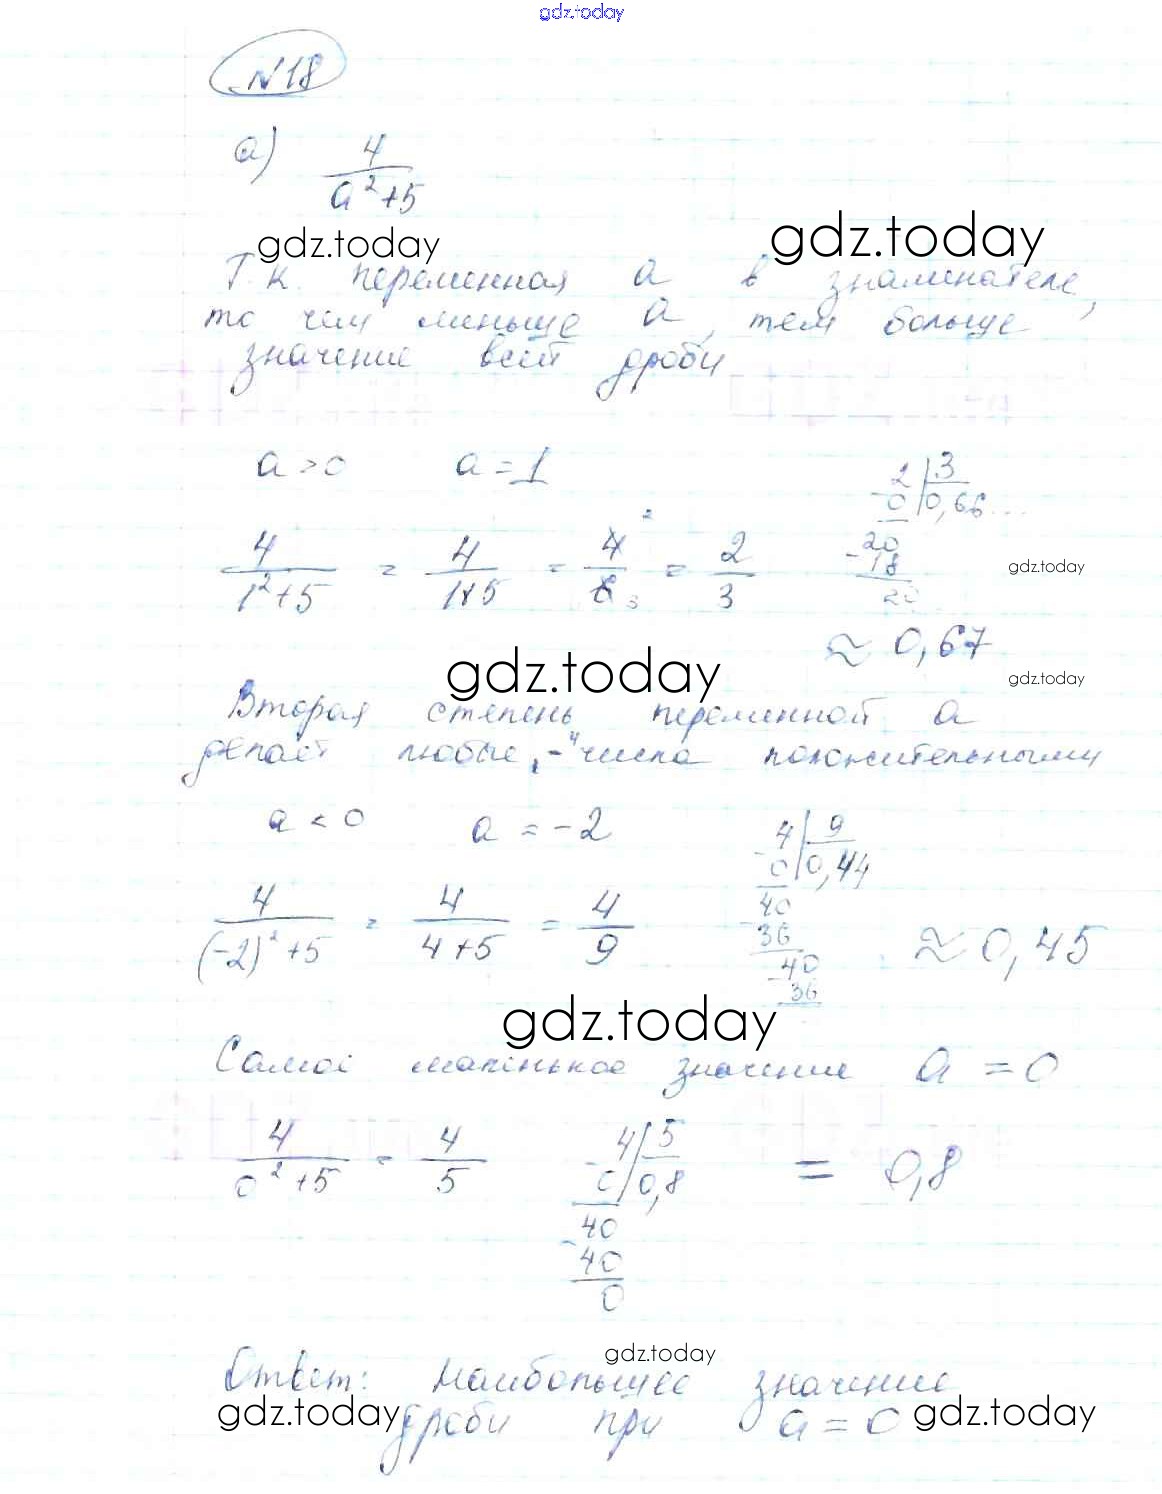 gdz.today
N18
а) 4/(a²+5)
gdz.today gdz.today
Т.к. переменная а в знаминателе,
то чем меньше а, тем больше
значение всей дроби
a > 0 a = 1
2 | 3
0 | 0,66...
4/(1²+5) = 4/(1+5) = 4/6 = 2/3
2
3
20
- 18
20
gdz.today
≈ 0,67
gdz.today
gdz.today
Вторая степень переменной а
делает любые "-" числа положительными
a < 0 a = -2
4 | 9
- 0 | 0,44
4/((-2)²+5) = 4/(4+5) = 4/9
40
- 36
40
- 36
≈ 0,45
gdz.today
Самое маленькое значение a = 0
4/(0²+5) = 4/5
4 | 5
- 0 | 0,8
40
- 40
0
= 0,8
gdz.today
Ответ: наибольшее значение
gdz.today дроби при a = 0 gdz.today